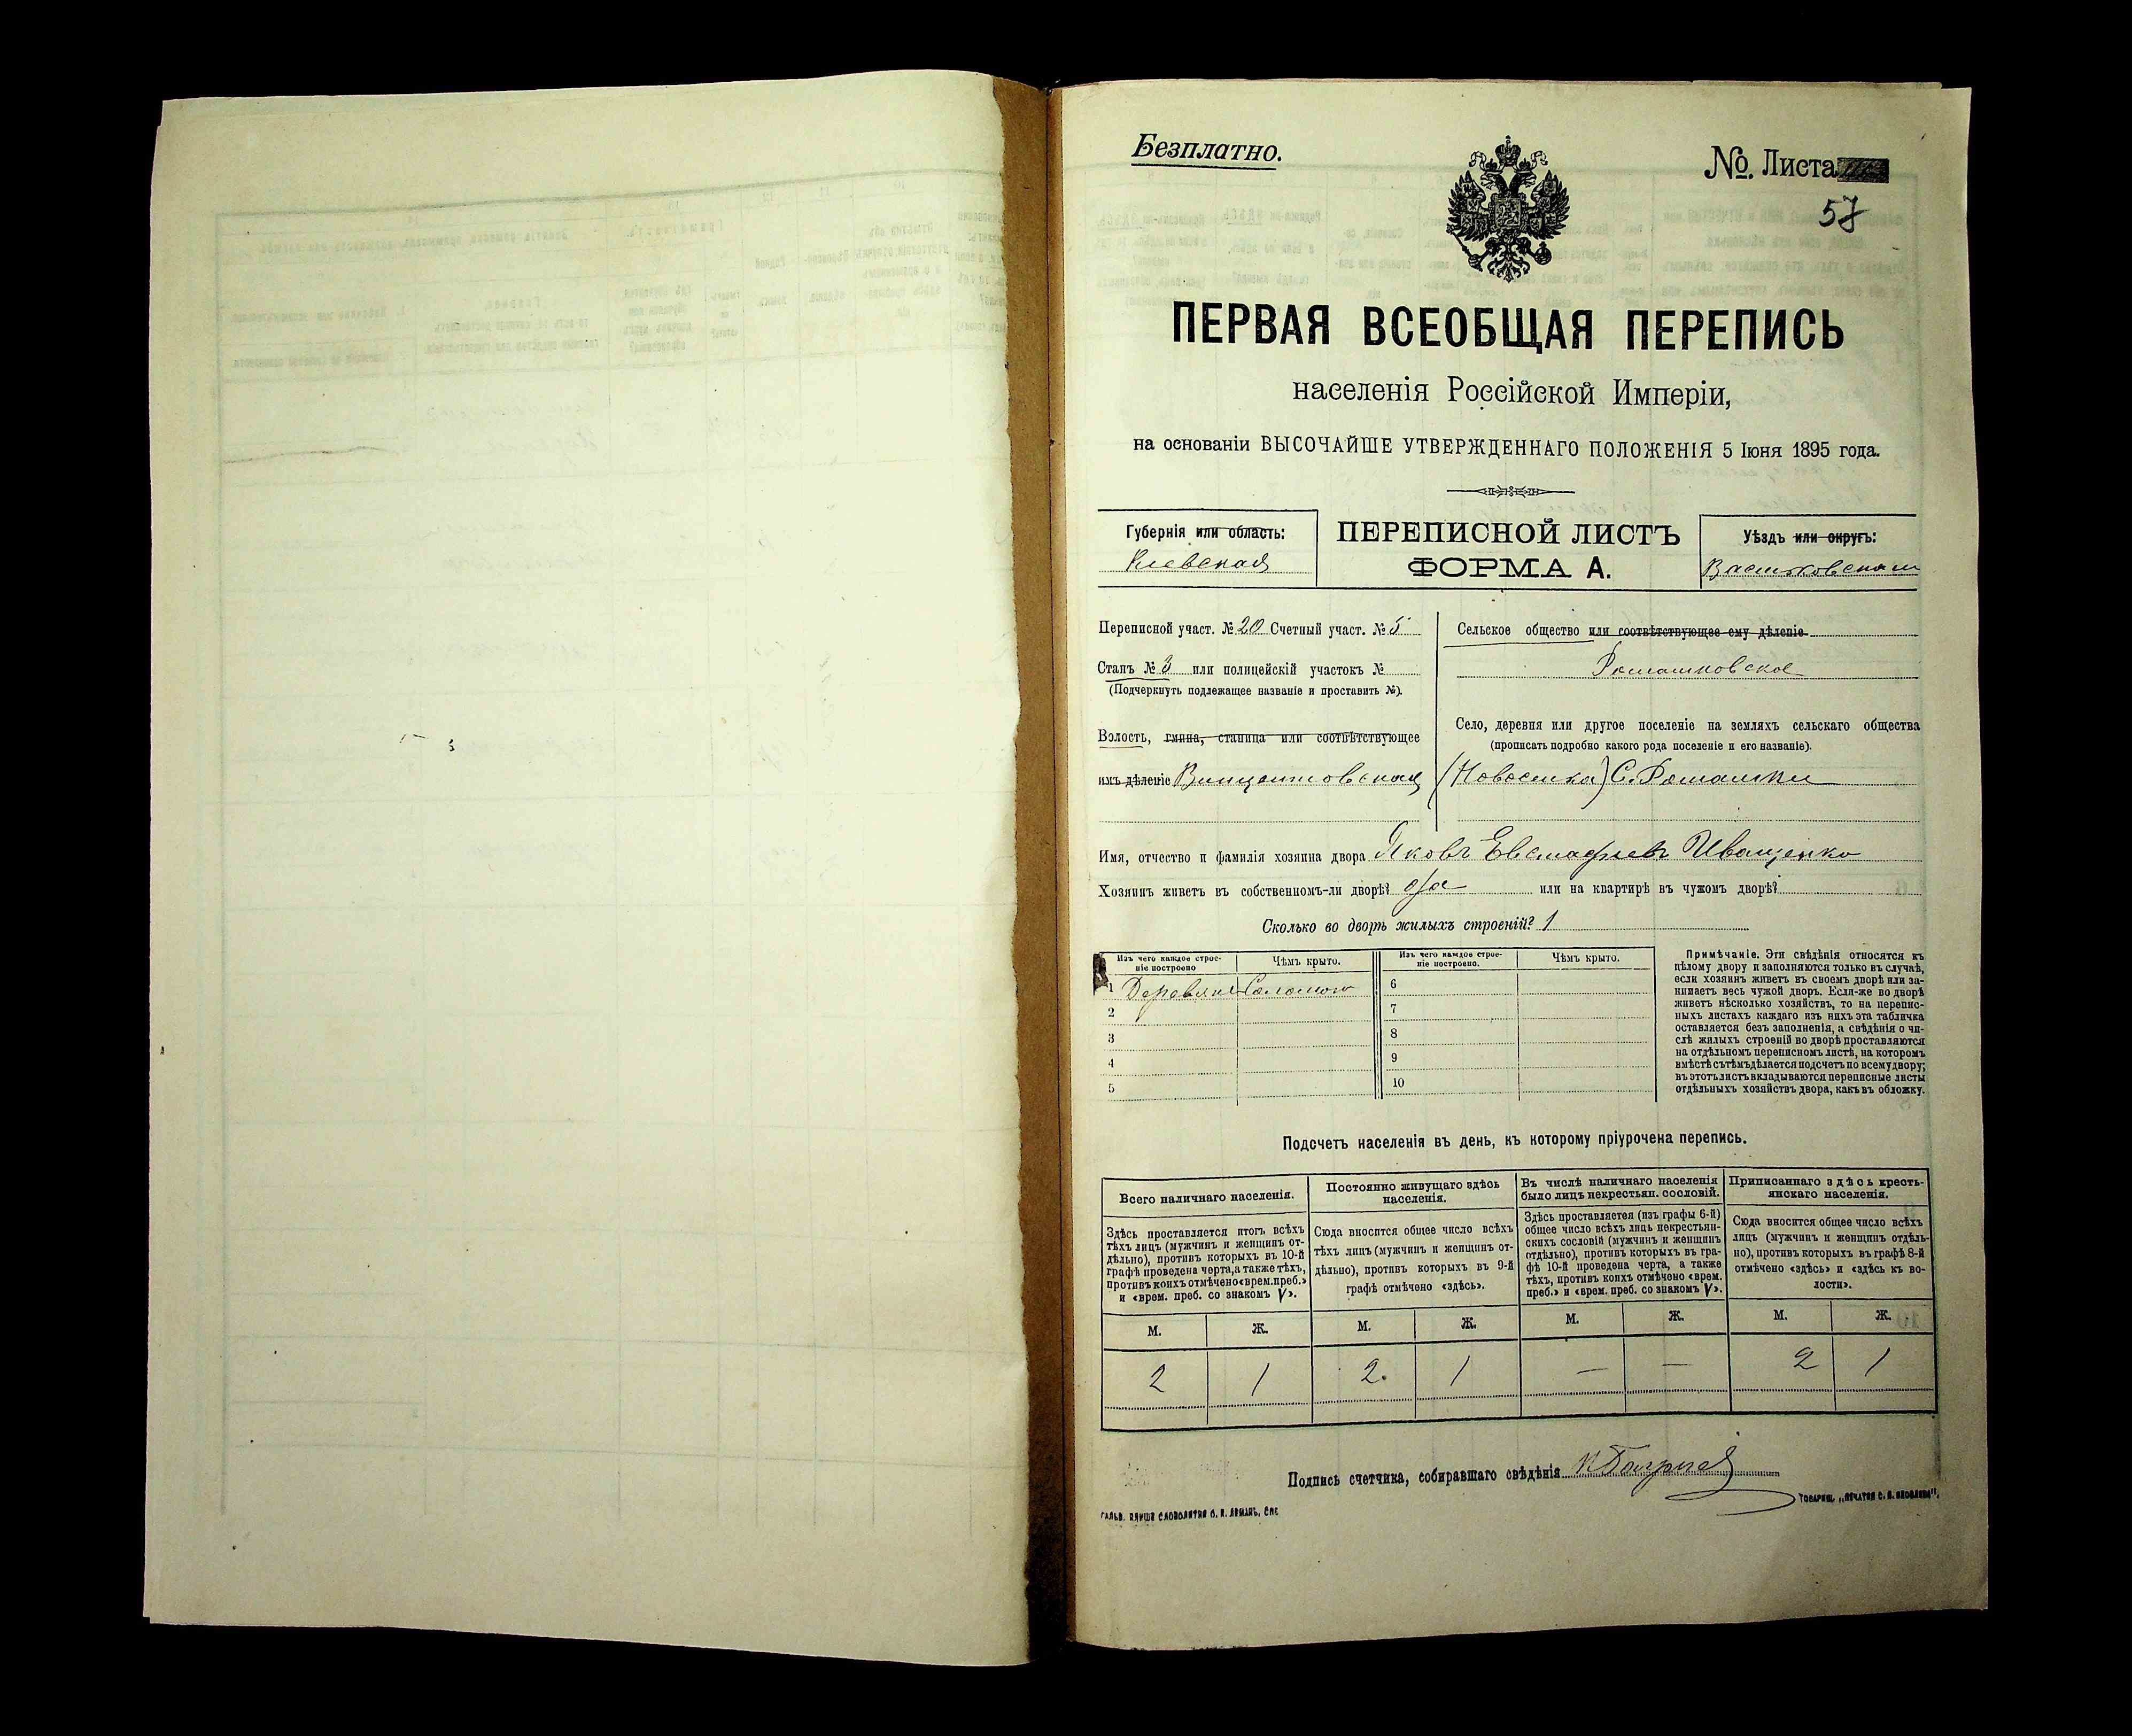 Безплатно.
№. Листа
57
ПЕРВАЯ ВСЕОБЩАЯ ПЕРЕПИСЬ
населенія Россійской Имперіи,
на основаніи ВЫСОЧАЙШЕ УТВЕРЖДЕННАГО ПОЛОЖЕНІЯ 5 Іюня 1895 года.
Губернія или область:
Кіевская
ПЕРЕПИСНОЙ ЛИСТЪ
ФОРМА А.
Уѣздъ или округъ:
Васильковскій
Переписной участ. № 20 Счетный участ. № 5
Станъ № 3 или полицейскій участокъ №
(Подчеркнуть подлежащее названіе и проставить №).
Волость, гмина, станица или соотвѣтствующее
имъ дѣленіе Винцентовская
Сельское общество или соотвѣтствующее ему дѣленіе
Ромашковское
Село, деревня или другое поселеніе на земляхъ сельскаго общества
(прописать подробно какого рода поселеніе и его названіе).
(Новоселка) С. Ромашки
Имя, отчество и фамилія хозяина двора Яковъ Евстафіевъ Иващенко
Хозяинъ живетъ въ собственномъ-ли дворѣ? да или на квартирѣ въ чужомъ дворѣ?
Сколько во дворѣ жилыхъ строеній? 1
Изъ чего каждое строе-
ніе построено
Чѣмъ крыто.
Изъ чего каждое строе-
ніе построено.
Чѣмъ крыто.
1 Деревян Соломою
2
3
4
5
6
7
8
9
10
Примѣчаніе. Эти свѣдѣнія относятся къ
цѣлому двору и заполняются только въ случаѣ,
если хозяинъ живетъ въ своемъ дворѣ или за-
нимаетъ весь чужой дворъ. Если-же во дворѣ
живетъ нѣсколько хозяйствъ, то на перепис-
ныхъ листахъ каждаго изъ нихъ эта табличка
оставляется безъ заполненія, а свѣдѣнія о чи-
слѣ жилыхъ строеній во дворѣ проставляются
на отдѣльномъ переписномъ листѣ, на которомъ
вмѣстѣ съ тѣмъ дѣлается подсчетъ по всему двору;
въ этотъ листъ вкладываются переписные листы
отдѣльныхъ хозяйствъ двора, какъ въ обложку.
Подсчетъ населенія въ день, къ которому пріурочена перепись.
Всего наличнаго населенія.
Здѣсь проставляется итогъ всѣхъ
тѣхъ лицъ (мужчинъ и женщинъ от-
дѣльно), противъ которыхъ въ 10-й
графѣ проведена черта, а также тѣхъ,
противъ коихъ отмѣчено «врем. преб.»
и «врем. преб. со знакомъ V».
Постоянно живущаго здѣсь
населенія.
Сюда вносится общее число всѣхъ
тѣхъ лицъ (мужчинъ и женщинъ от-
дѣльно), противъ которыхъ въ 9-й
графѣ отмѣчено «здѣсь».
Въ числѣ наличнаго населенія
было лицъ некрестьян. сословій.
Здѣсь проставляется (изъ графы 6-й)
общее число всѣхъ лицъ некрестьян-
скихъ сословій (мужчинъ и женщинъ
отдѣльно), противъ которыхъ въ гра-
фѣ 10-й проведена черта, а также
тѣхъ, противъ коихъ отмѣчено «врем.
преб.» и «врем. преб. со знакомъ V».
Приписаннаго здѣсь кресть-
янскаго населенія.
Сюда вносится общее число всѣхъ
лицъ (мужчинъ и женщинъ отдѣль-
но), противъ которыхъ въ графѣ 8-й
отмѣчено «здѣсь» и «здѣсь къ во-
лости».
М. Ж. М. Ж. М. Ж. М. Ж.
2 1 2. 1 — — 2 1
Подпись счетчика, собиравшаго свѣдѣнія
ГАЛЬВ. КЛИШЕ СЛОВОЛИТНИ О. И. ЛЕМАНЪ, СПБ
ТОВАРИЩ. „ПЕЧАТНЯ С. П. ЯКОВЛЕВА".